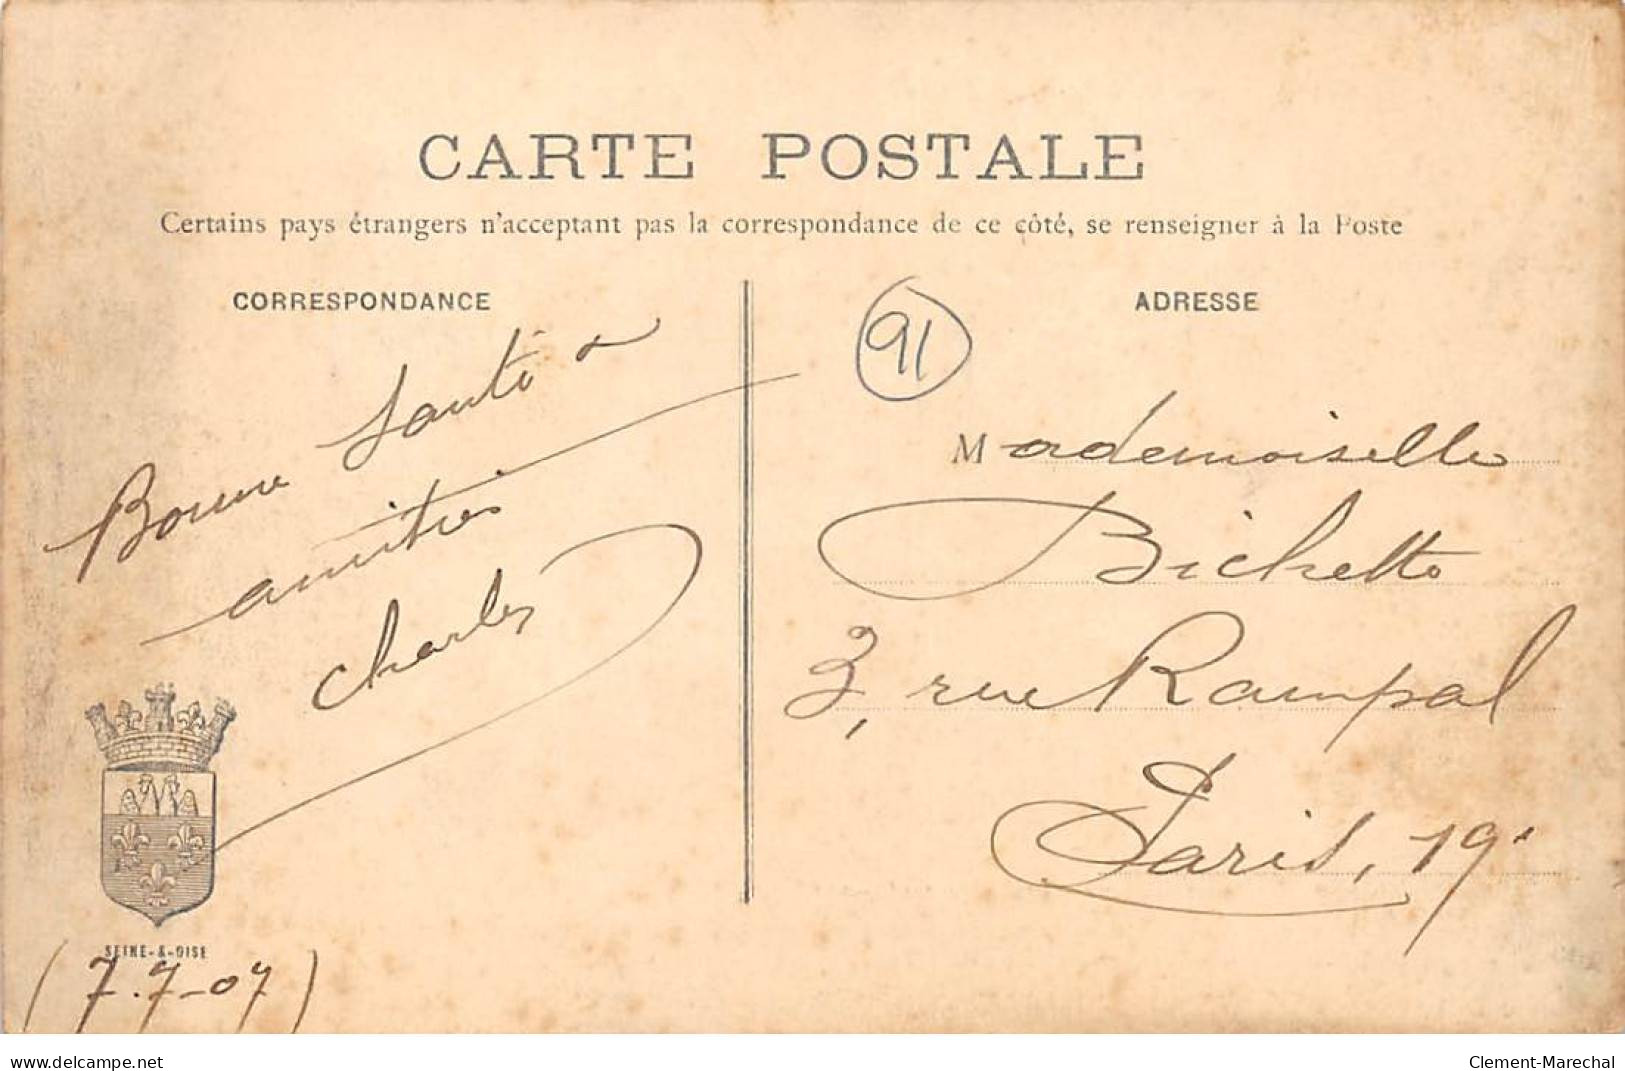 CARTE POSTALE
Certains pays étrangers n'acceptant pas la correspondance de ce côté, se renseigner à la Poste
CORRESPONDANCE
ADRESSE
91
Bonne Santé &
amitiés
Charles
Mademoiselle
Bichette
3, rue Rampal
Paris, 19e
SEINE-&-OISE
(7.7-07)
www.delcampe.net
Clement-Marechal